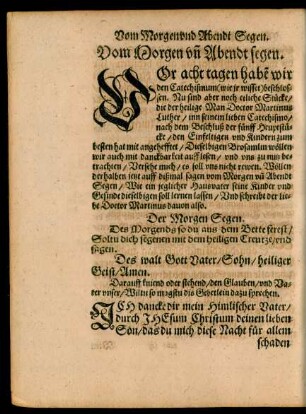 Vom Morgenvnd Abendt Segen.
Vom Morgen vñ Abendt segen.
VOr acht tagen habē wir
den Catechismum (wie jr wisset) beschlos-
sen. Nu sind aber noch etliche Stücke/
die der heilige Man Doctor Martinus
Luther/ inn seinem lieben Catechismo/
nach dem Beschluß der fünff Heuptstü-
cke/ den Einfeltigen vnd Kindern zum
besten hat mit angehefftet/ Dieselbigen Brosamlin wöllen
wir auch mit danckbarkeit aufflesen/ vnd vns zu nutz be-
trachten/ Versehe mich/ es soll vns nicht rewen. Wöllen
derhalben jetzt auff dißmal sagen vom Morgen vñ Abendt
Segen/ Wie ein jeglicher Hausvater seine Kinder vnd
Gesinde dieselbigen soll lernen lassen/ Vnd schreibet der lie-
be Doctor Martinus dauon also.
Der Morgen Segen.
Des Morgends so du aus dem Bette ferest/
Soltu dich segenen mit dem heiligen Creutze/ vnd
sagen.
Des walt Gott Vater/ Sohn/ heiliger
Geist/ Amen.
Darauff kniend oder stehend/ den Glauben/ vnd Va-
ter vnser/ Wiltu so magstu dis Gebetlein dazu sprechen.
ICH dancke dir mein Himlischer Vater/
durch JHEsum Christum deinen lieben
Son/ das du mich diese Nacht für allem
schaden